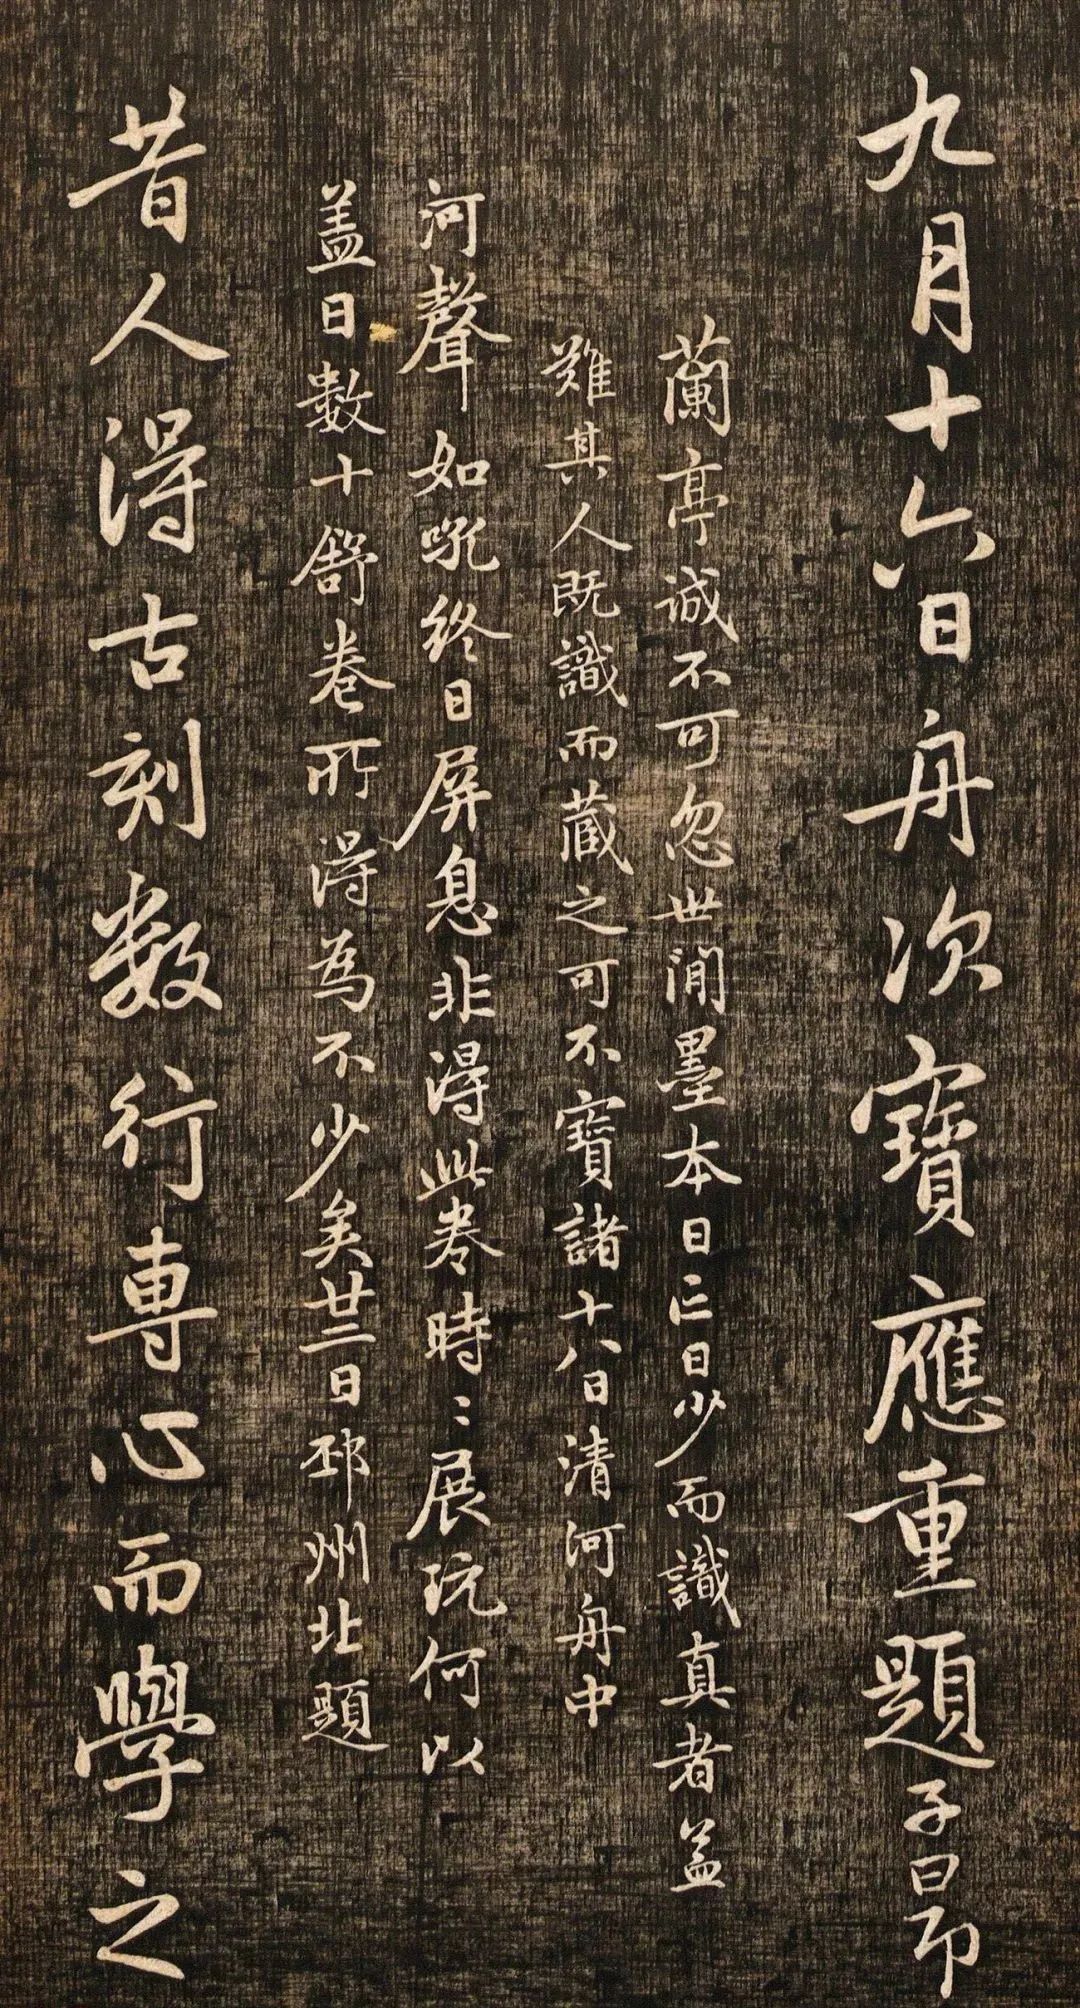 九月十六日舟次寶應重題子昂
蘭亭誠不可忽世間墨本日亡日少而識真者盖
難其人既識而藏之可不寶諸十八日清河舟中
河聲如吼終日屏息非得此卷時〻展玩何以
盖日數十舒卷所得為不少矣廿二日邳州北題
昔人得古刻数行專心而學之